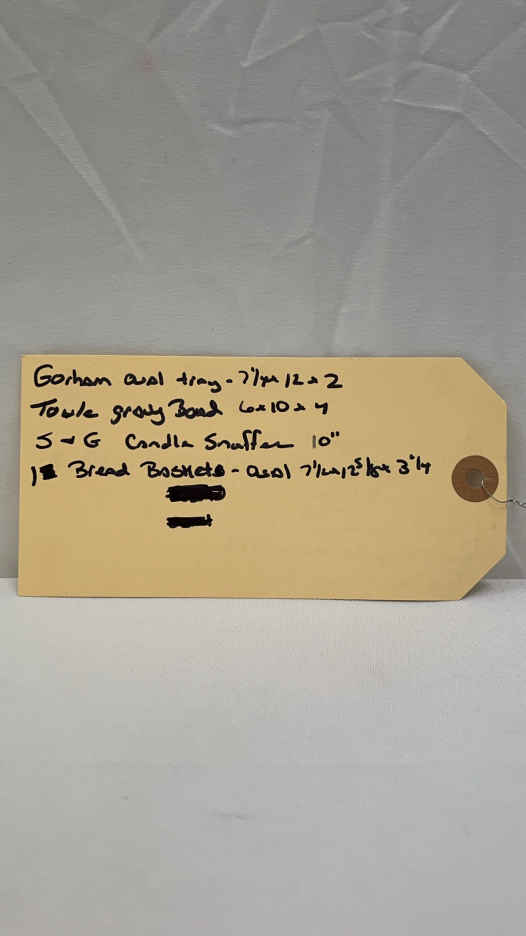 Gorham oval tray - 7 1/4 x 12 x 2
Towle gravy Boad 6 x 10 x 4
S + G Candle Snuffer 10"
1 Bread Baskets - oval